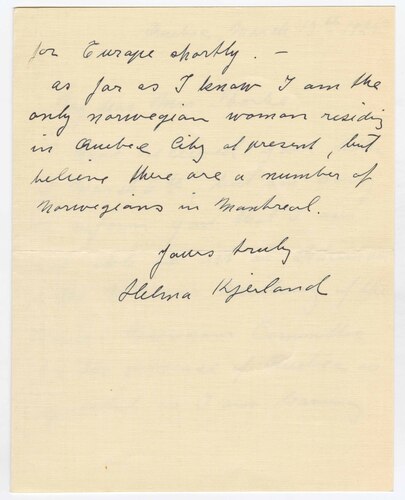 for Europe shortly. –
as far as I know I am the
only norwegian woman residing
in Quebec City at present, but
believe there are a number of
norwegians in Montreal.
Yours truly
Helma Kjerland